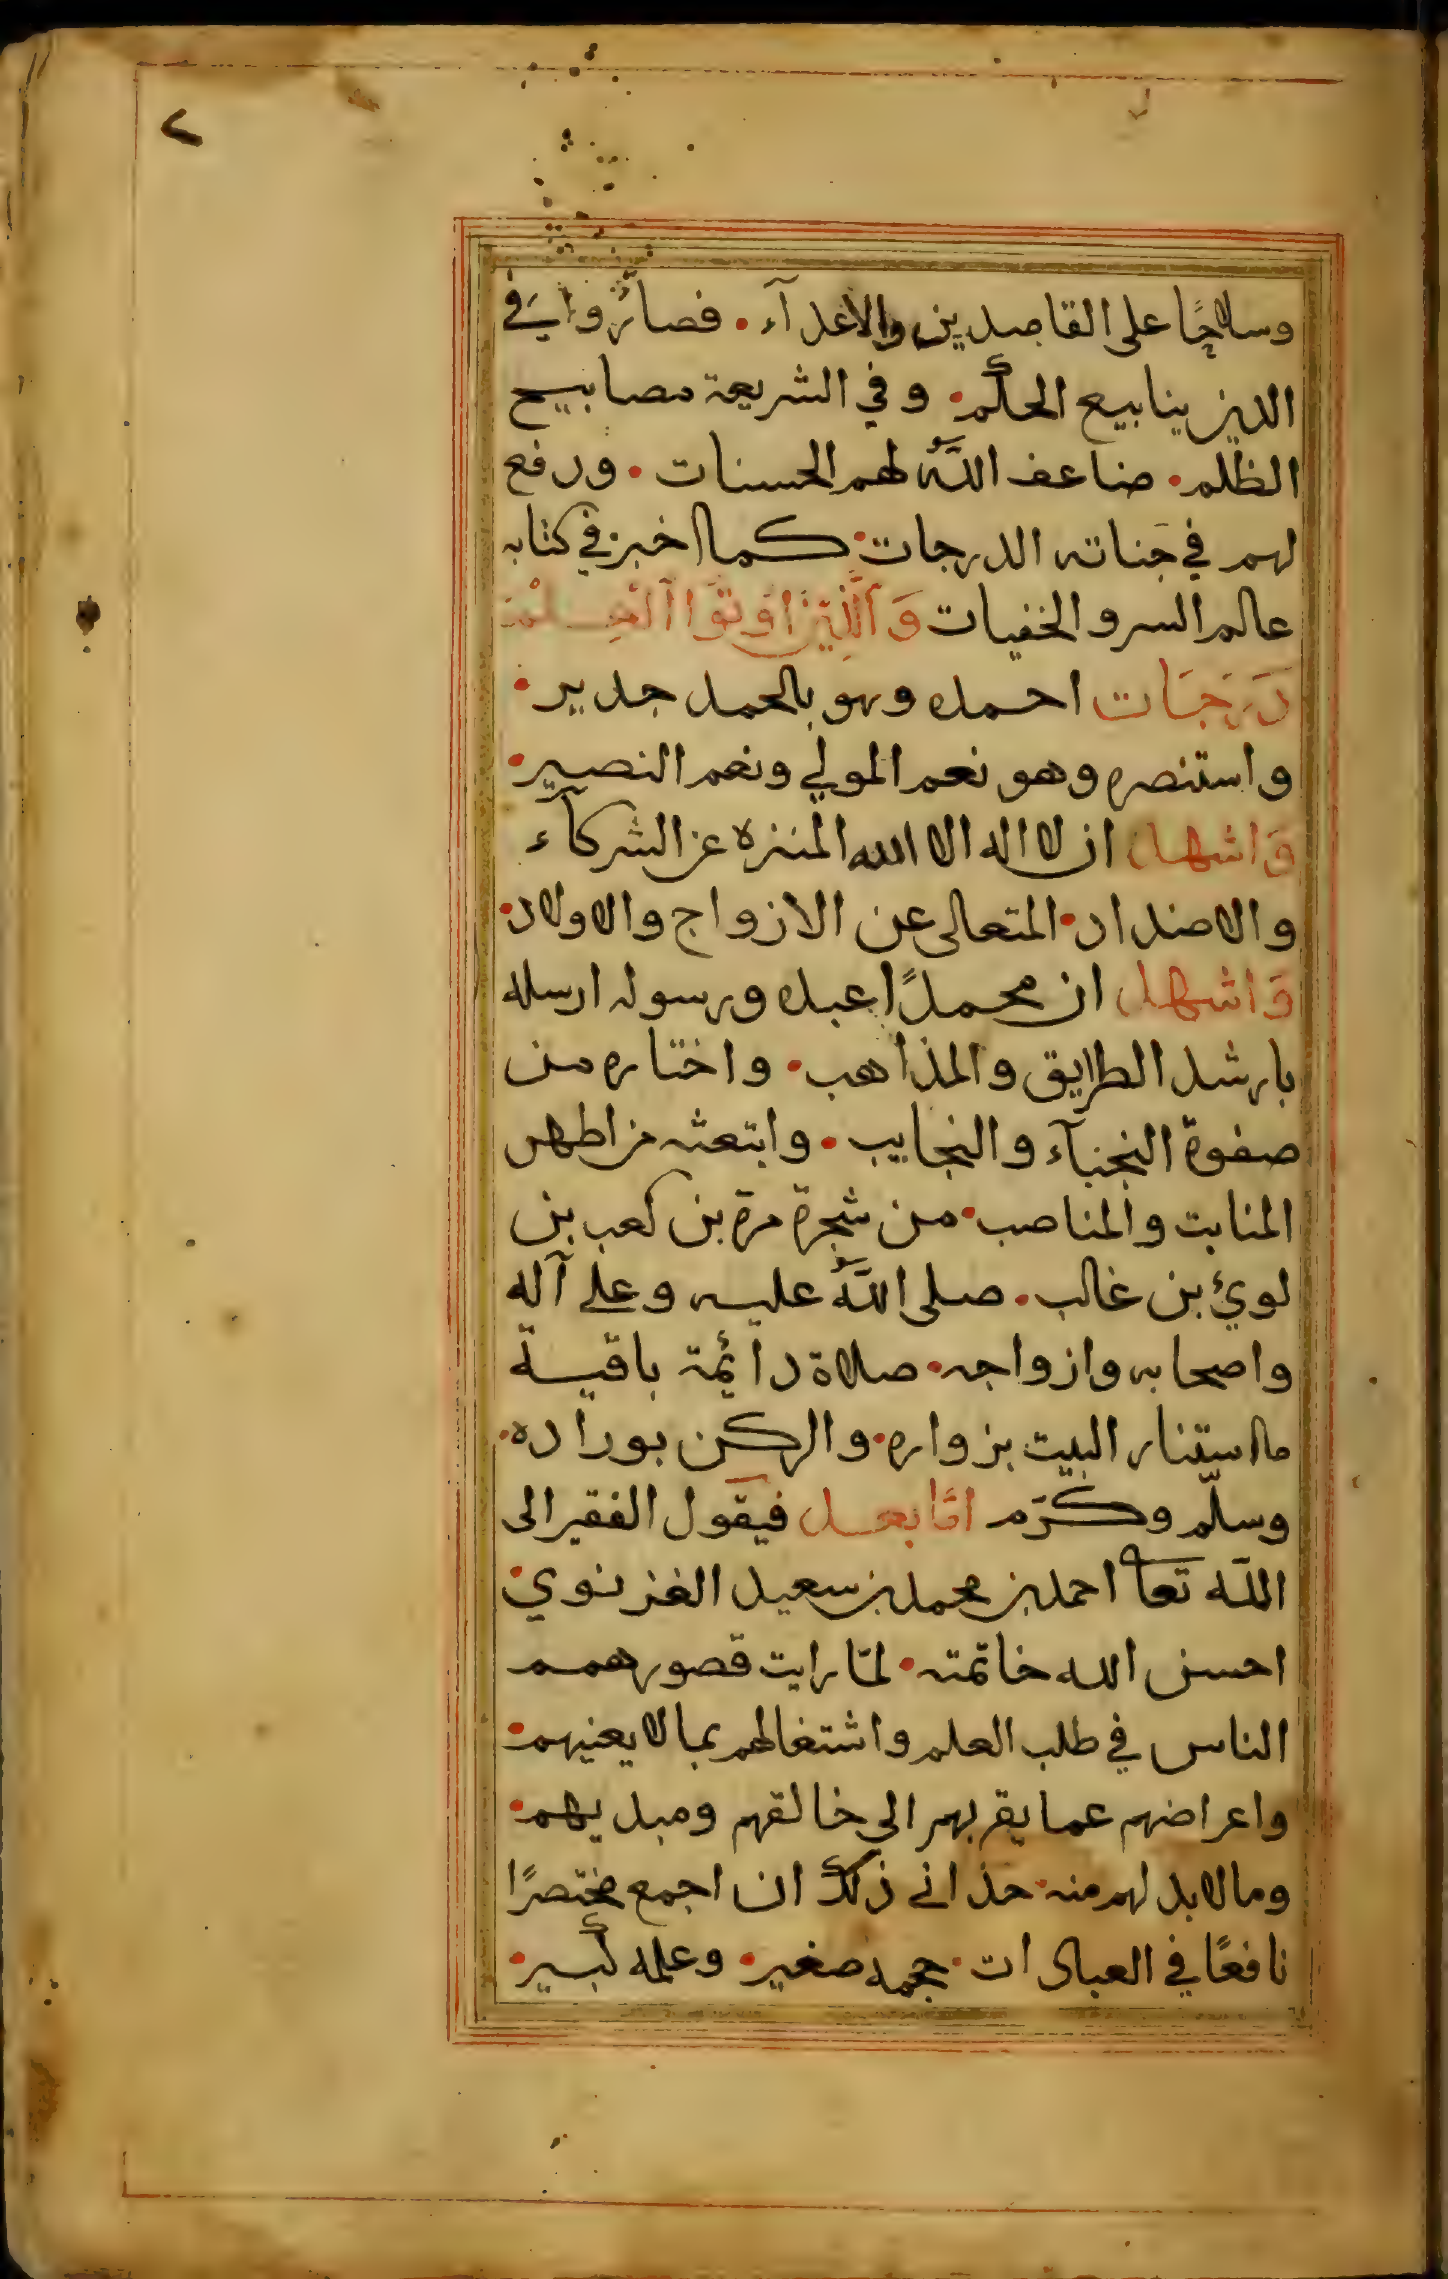 ٢
وسلاحًا على القاصدين والاعدآء • فصاروا في
الدين ينابيع الحكم • وفي الشريعة مصابيح
الظلم • ضاعف اللّه لهم الحسنات • ورفع
لهم في جَناته الدرجات • كما اخبر في كتابه
عالم السر والخفيات وَالَّذِينَ اوتُوا العِلْمَ
دَرَجَات احمده وهو بالحمد جدير •
واستنصره وهو نعم المولي ونعم النصير •
وَاشهد ان لا اله الا الله المنزه عن الشركآء
والاضداد • المتعالى عن الازواج والاولاد •
وَاشهد ان محمدًا عبده ورسوله ارسله
بارشد الطرايق والمذاهب • واختاره من
صفوة النجبآء والنجايب • وابتعثه من اطهر
المنابت والمناصب • من شجرة مرة بن كعب بن
لويّ بن غالب • صلى اللّه عليه وعلى آله
واصحابه وازواجه • صلاة دائمة باقية
ما استنار البيت بزواره • والركن بوراده •
وسلّم وكرّم امّا بعد فيقول الفقير الى
اللّه تعا احمد بن محمد بن سعيد الغزنوي •
احسن الله خاتمته • لمّا رايت قصور همم
الناس في طلب العلم واشتغالهم بما لا يعنيهم •
واعراضهم عما يقربهم الي خالقهم ومبديهم •
وما لا بد لهم منه • حذاني ذلك ان اجمع مختصرًا
نافعًا في العبادات • حجمه صغير • وعلمه كبير •